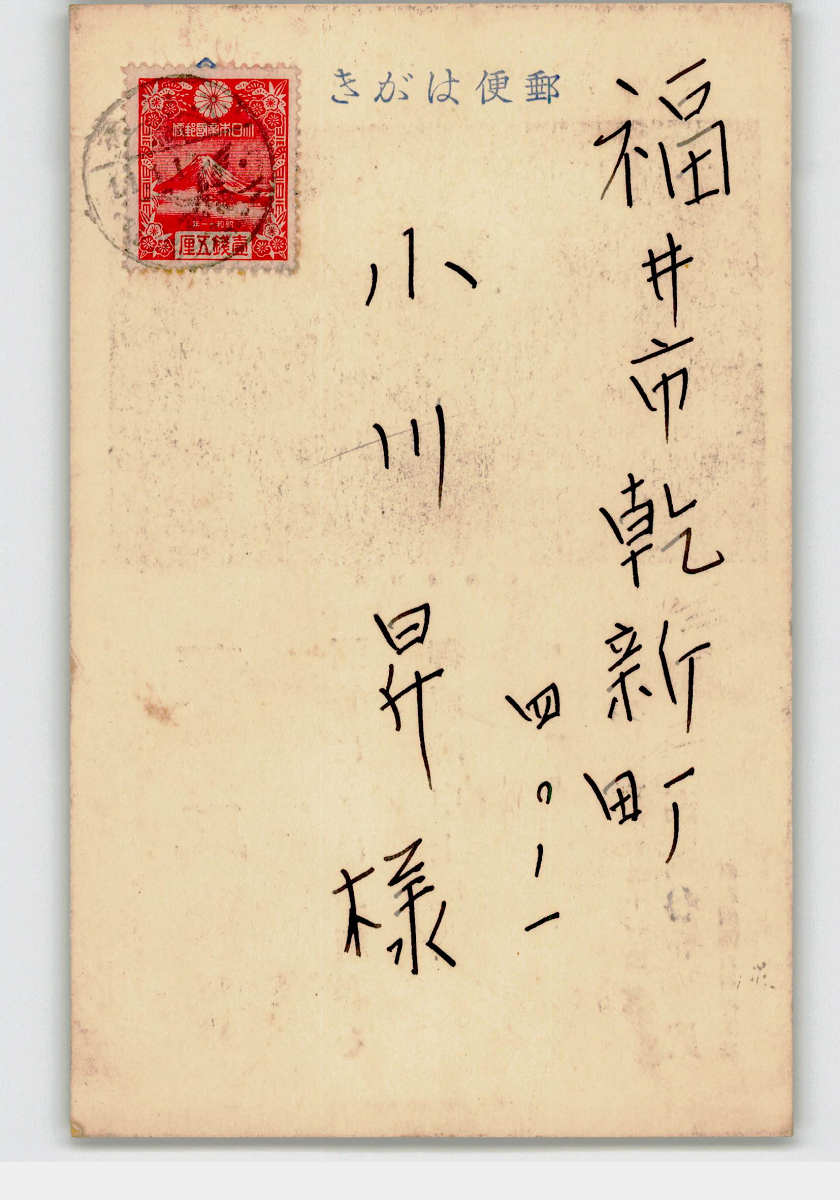 郵便はがき
福井市乾新町
四〇ノ一
小川昇様
大日本帝國郵便
昭和十一年
壹錢五厘